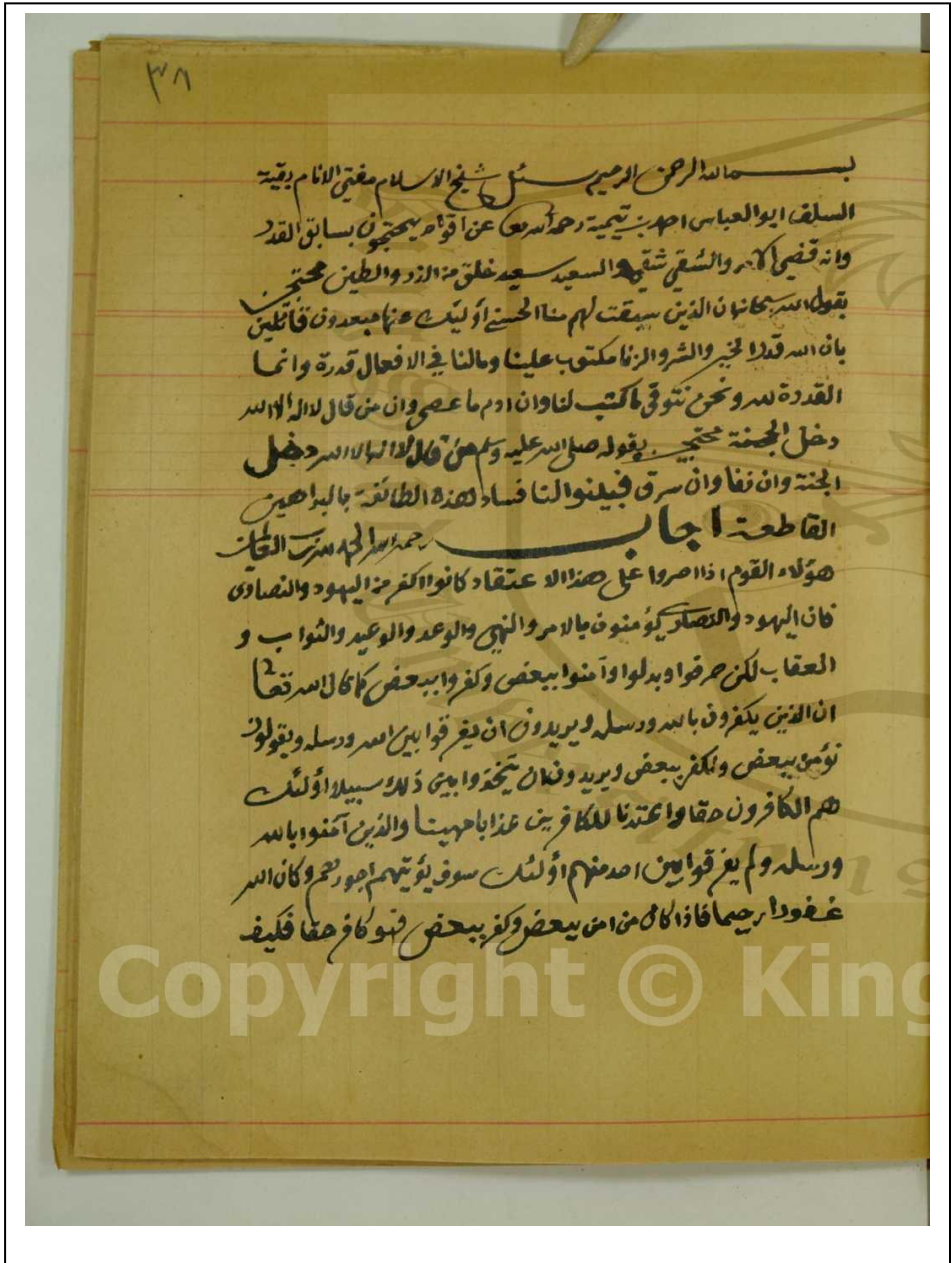 ٣٨
بسم الله الرحمن الرحيم سئل شيخ الاسلام مفتي الانام بقية
السلف ابو العباس احمد بن تيمية رحمه الله تعا عن اقوام يحتجون بسابق القدر
وانه قضي الامر والشقي شقي والسعيد سعيد خلق من الذر والطين محتجين
بقول الله سبحانه ان الذين سبقت لهم منا الحسنى أولئك عنها مبعدون قائلين
بان الله قدر الخير والشر والزنا مكتوب علينا ومالنا في الافعال قدرة وانما
القدرة لله ونحن نتوقى ما كتب لنا وان ادم ما عصى وان من قال لا اله الا الله
دخل الجنة محتجين بقوله صلى الله عليه وسلم من قال لا اله الا الله دخل
الجنة وان زنا وان سرق فبينوا لنا فساد هذه الطائفة بالبراهين
القاطعة اجاب رحمه الله الحمد لله رب العالمين
هؤلاء القوم اذا اصروا على هذا الاعتقاد كانوا اكفر من اليهود والنصارى
فان اليهود والنصارى يؤمنون بالامر والنهي والوعد والوعيد والثواب و
العقاب لكن حرفوا وبدلوا وآمنوا ببعض وكفروا ببعض كما قال الله تعا
ان الذين يكفرون بالله ورسله ويريدون ان يفرقوا بين الله ورسله ويقولون
نؤمن ببعض ونكفر ببعض ويريدون ان يتخذوا بين ذلك سبيلا اؤلئك
هم الكافرون حقا واعتدنا للكافرين عذابا مهينا والذين آمنوا بالله
ورسله ولم يفرقوا بين احد منهم اؤلئك سوف يؤتيهم اجورهم وكان الله
غفورا رحيما فاذا كان من امن ببعض وكفر ببعض فهو كافر حقا فكيف
Copyright © King